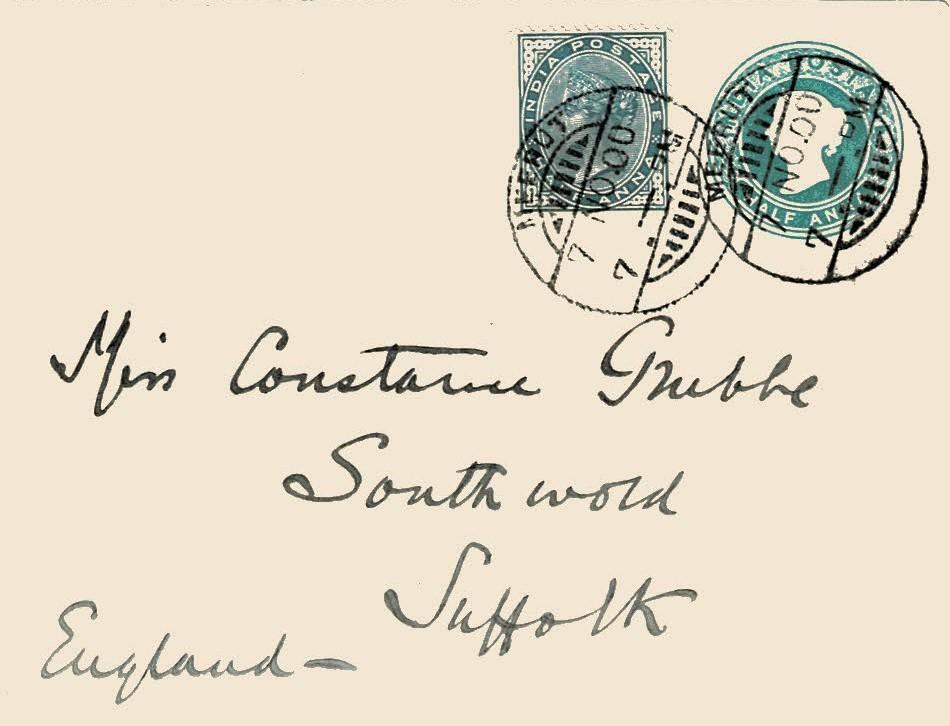 INDIA POSTAGE
ANNA
HALF ANNA
MEERUT
7 NO.00
7 PM
MEERUT
7 NO.00
7 PM
Miss Constance Grubbe
Southwold
Suffolk
England —